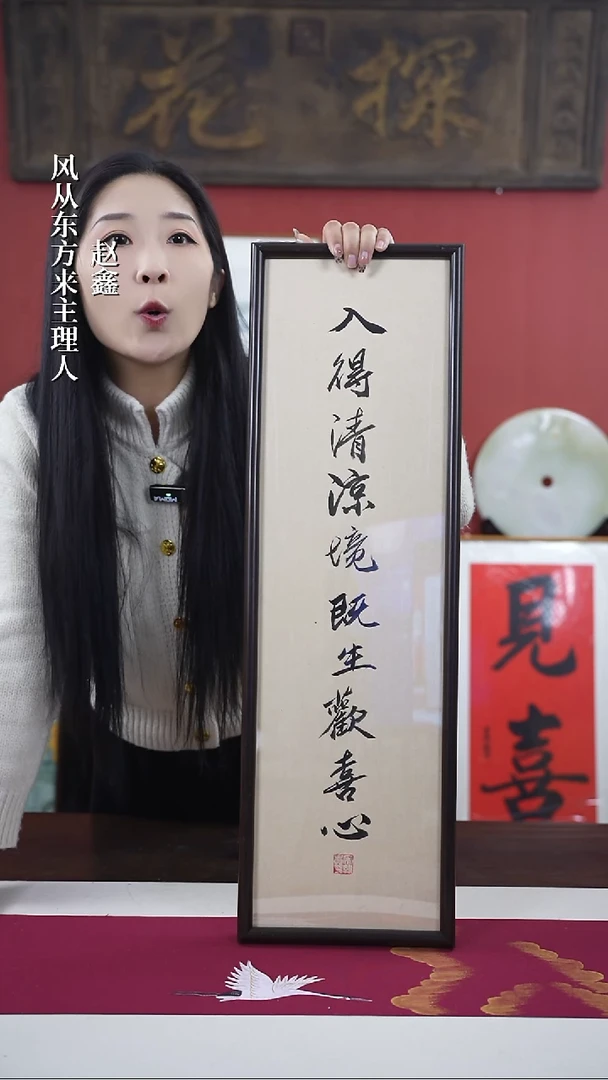 探花
风从东方来主理人
赵鑫
入得清凉境既生歡喜心
見喜